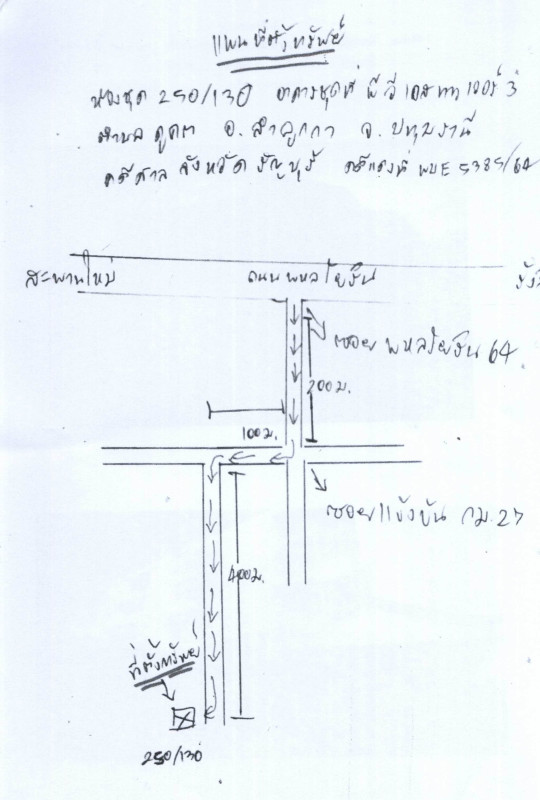 แผนที่ตั้งทรัพย์
ห้องชุด 250/130 อาคารชุด พี วี เอส ทาวเวอร์ 3
ตำบล คูคต อ. ลำลูกกา จ. ปทุมธานี
คดีศาล จังหวัด ธัญบุรี คดีแดงที่ ผบE 5385/64
สะพานใหม่ ถนน พหลโยธิน รังสิ
ซอย พหลโยธิน 64
200 ม.
100 ม.
ซอย แข้งขัน กม. 27
400 ม.
ที่ตั้งทรัพย์
250/130